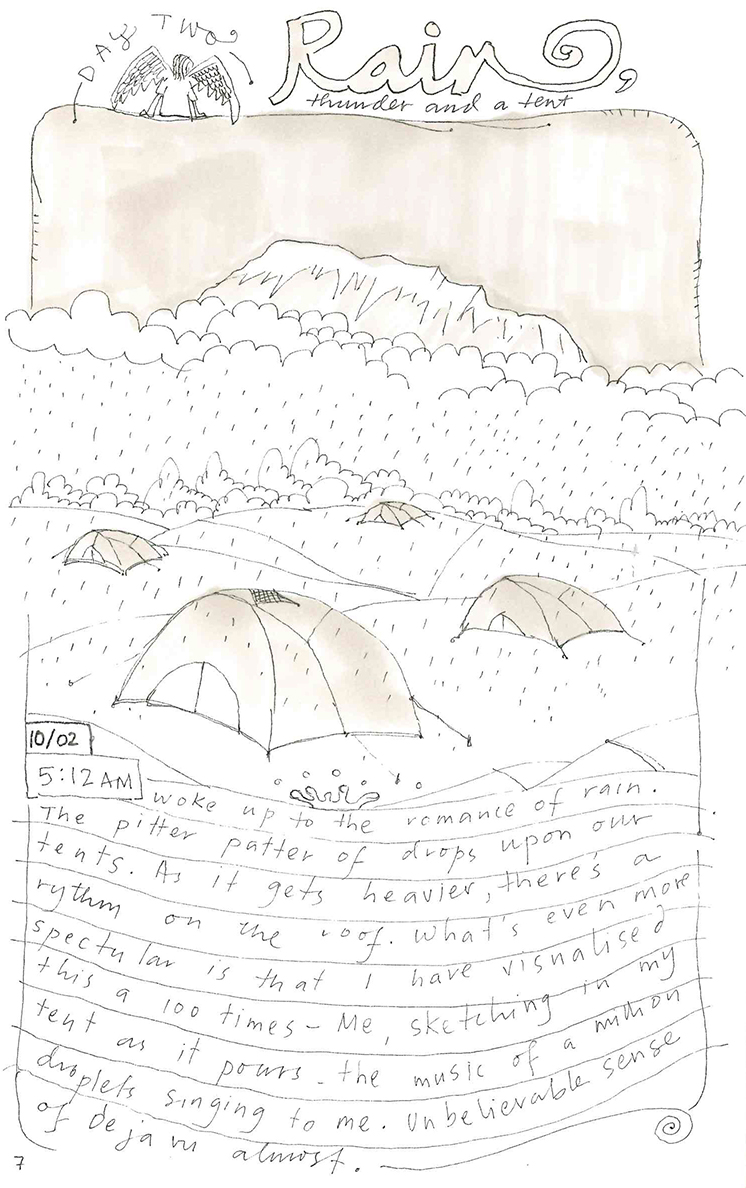 DAY TWO
Rain,
thunder and a tent
10/02
5:12 AM
woke up to the romance of rain.
The pitter patter of drops upon our
tents. As it gets heavier, there's a
rythm on the roof. What's even more
spectular is that I have visualised
this a 100 times - Me, sketching in my
tent as it pours. the music of a million
droplets singing to me. Unbelievable sense
of deja vu almost.
7